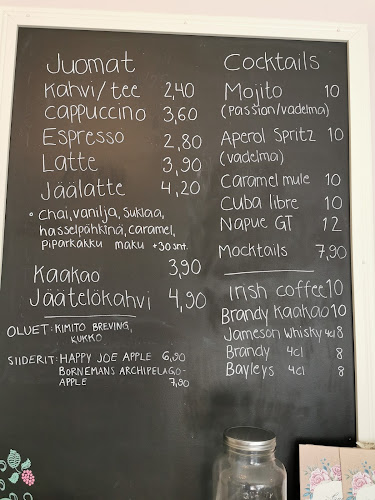 Juomat
Kahvi/tee 2,40
cappuccino 3,60
Espresso 2,80
Latte 3,90
Jäälatte 4,20
• Chai, vanilja, Suklaa,
hasselpähkinä, caramel,
Piparkakku maku +30 snt.
Kaakao 3,90
Jäätelökahvi 4,90
OLUET: KIMITO BREVING,
KUKKO
SIIDERIT: HAPPY JOE APPLE 6,90
BORNEMANS ARCHIPELAGO-
APPLE 7,90
Cocktails
Mojito 10
(Passion/vadelma)
Aperol Spritz 10
(vadelma)
Caramel mule 10
Cuba libre 10
Napue GT 12
Mocktails 7,90
Irish coffee 10
Brandy Kaakao 10
Jameson Whisky 4cl 8
Brandy 4cl 8
Bayleys 4cl 8